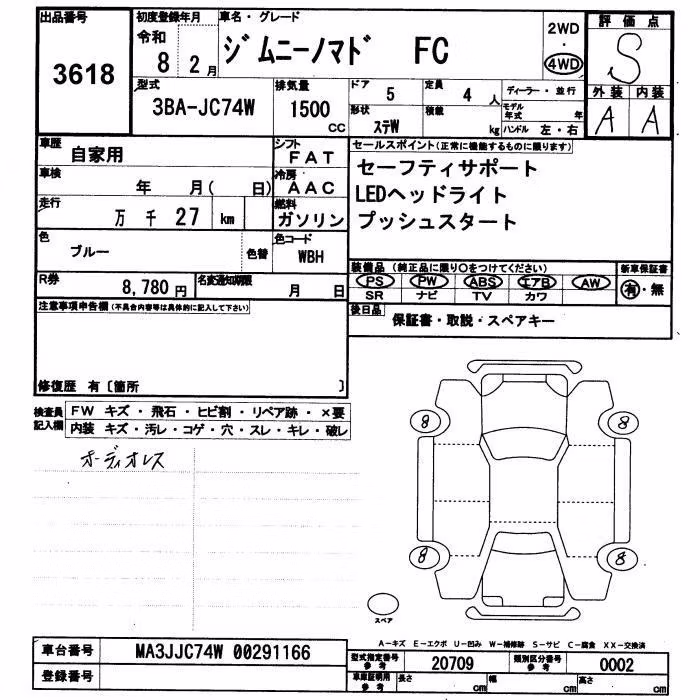 出品番号 3618
初度登録年月 令和 8 2月
車名・グレード ジムニーノマド FC
2WD・4WD
評価点 S
型式 3BA-JC74W
排気量 1500 CC
ドア 5
定員 4 人
ディーラー・並行
形状 ステW
積載 kg
モデル年式 年
ハンドル 左・右
外装 内装
A A
車歴 自家用
シフト FAT
車検 年 月( 日)
冷房 AAC
走行 万千27 km
燃料 ガソリン
色 ブルー 色替
色コード WBH
R券 8,780円
名変通知期限 月 日
セールスポイント(正常に機能するものに限ります)
セーフティサポート
LEDヘッドライト
プッシュスタート
装備品 (純正品に限り○をつけてください)
PS PW ABS エアB AW
SR ナビ TV カワ
新車保証書 有・無
後日品 保証書・取説・スペアキー
注意事項申告欄(不具合内容等は具体的に記入して下さい)
修復歴 有〔箇所 〕
検査員記入欄
FW キズ・飛石・ヒビ割・リペア跡・×要
内装 キズ・汚レ・コゲ・穴・スレ・キレ・破レ
オーディオレス
8 8
8 8
スペア
A-キズ E-エクボ U-凹み W-補修跡 S-サビ C-腐食 XX-交換済
車台番号 MA3JJC74W 00291166
型式指定番号 参考 20709
類別区分番号 参考 0002
登録番号
車庫証明用 参考 長さ cm 幅 cm 高さ cm